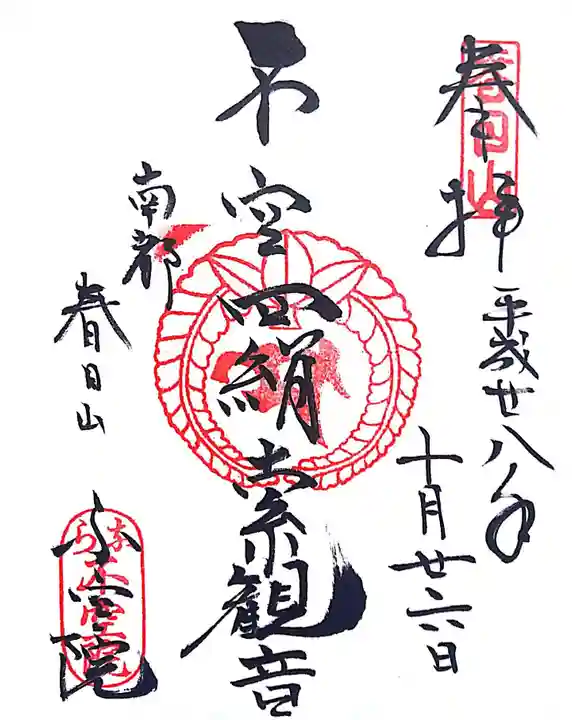 奉拝
春日山
平成廿八年
十月廿六日
不空羂索観音
南都
春日山
不空院
なら
不空院